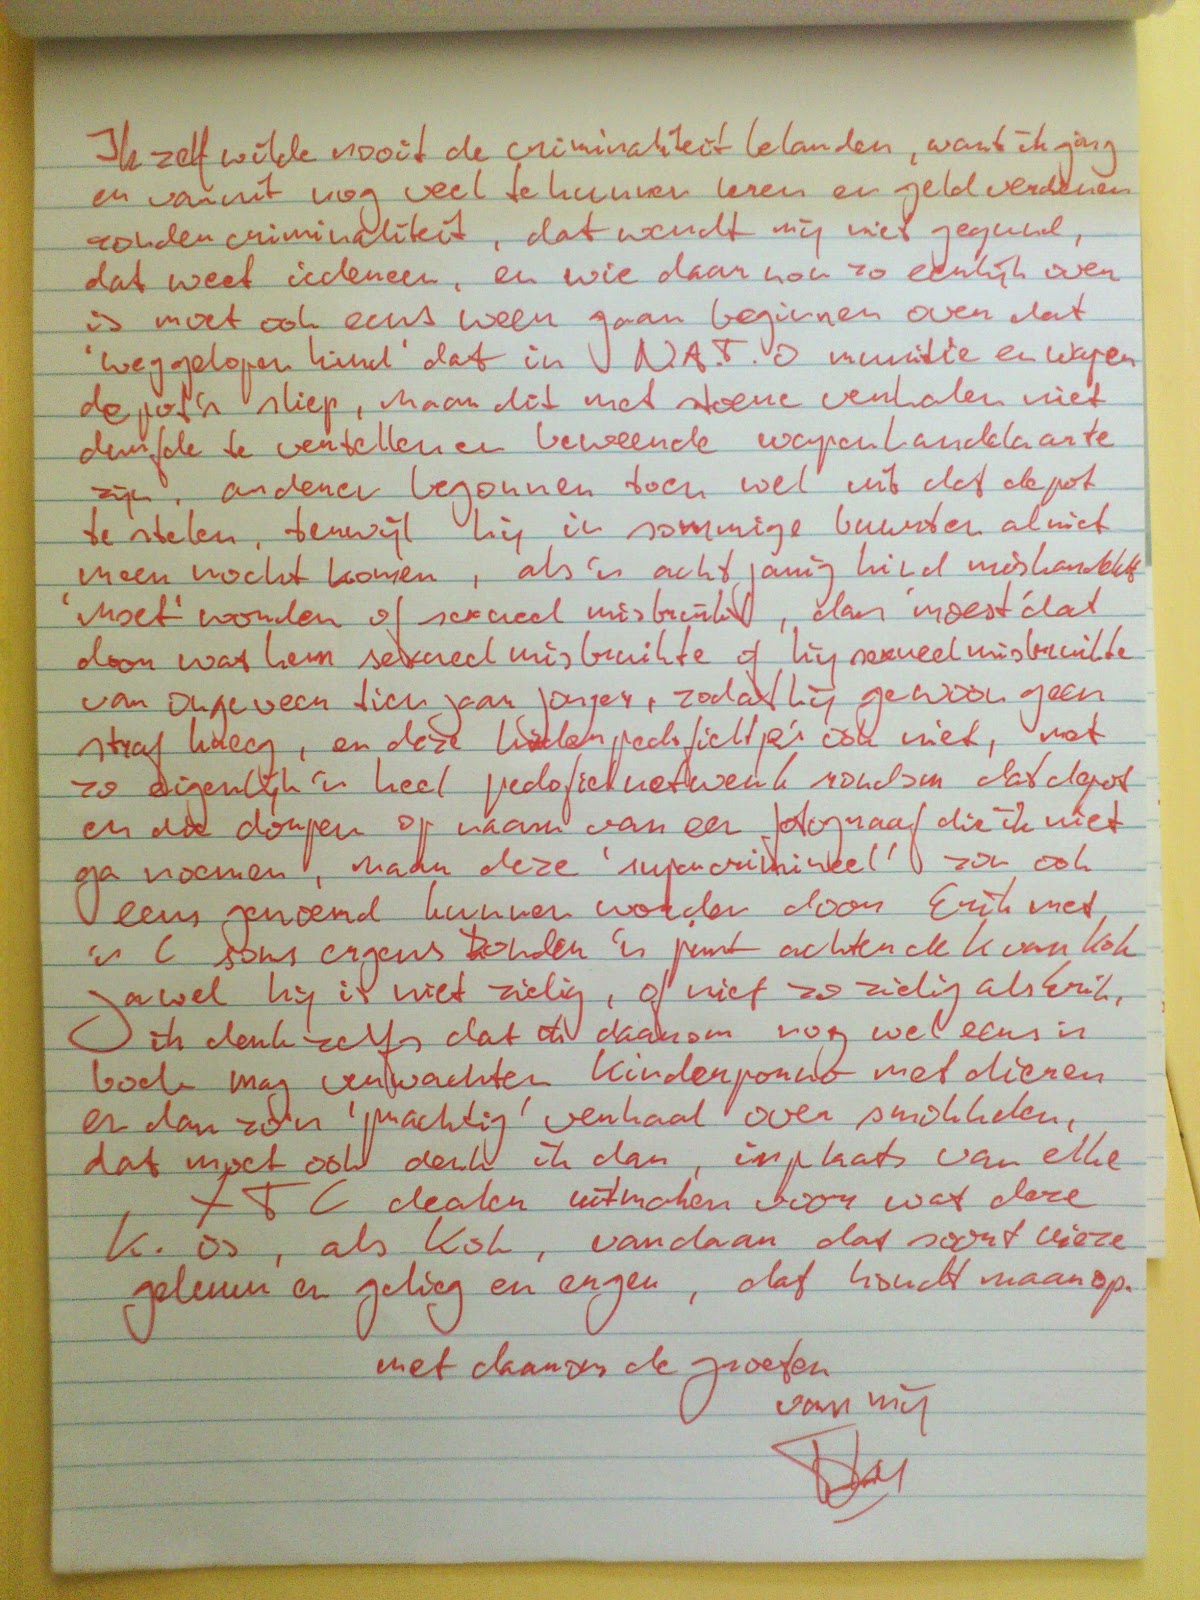 Ik zelf wilde nooit de criminaliteit belanden, want ik ging
er vanuit nog veel te kunnen leren en geld verdienen
zonder criminaliteit, dat wordt mij niet gegund,
dat weet iedereen, en wie daar nou zo eerlijk over
is moet ook eens weer gaan beginnen over dat
'weggelopen kind' dat in N.A.T.O munitie en wapen
depot's sliep, maar dit met stoere verhalen niet
durfde te vertellen en beweerde wapenhandelaar te
zijn, anderen begonnen toen wel uit dat depot
te stelen, terwijl hij in sommige buurten al niet
meer mocht komen, als 'n acht jarig kind mishandeld
'moet' worden of sexueel misbruikt, dan 'moest' dat
door wat hem sexueel misbruikte of hij sexueel misbruikte
van ongeveer tien jaar jonger, zodat hij gewoon geen
straf kreeg, en deze kinderpedofieltje's ook niet, met
zo eigenlijk 'n heel pedofielnetwerk rondom dat depot
en die dorpen op naam van een fotograaf die ik niet
ga noemen, maar deze 'supercrimineel' zou ook
eens genoemd kunnen worden door Erik met
'n C soms ergens zonder 'n punt achter de k van Kok
Jawel hij is niet zielig, of niet zo zielig als Erik,
ik denk zelfs dat ik daarom nog wel eens 'n
boek mag verwachten kinderporno met dieren
en dan zo'n 'prachtig' verhaal over smokkelen,
dat moet ook denk ik dan, inplaats van elke
XTC dealer uitmaken voor wat deze
K. is, als Kok, vandaar dat soort vieze
geleur en gelieg en erger, dat houdt maar op.
met daarom de groeten
van mij